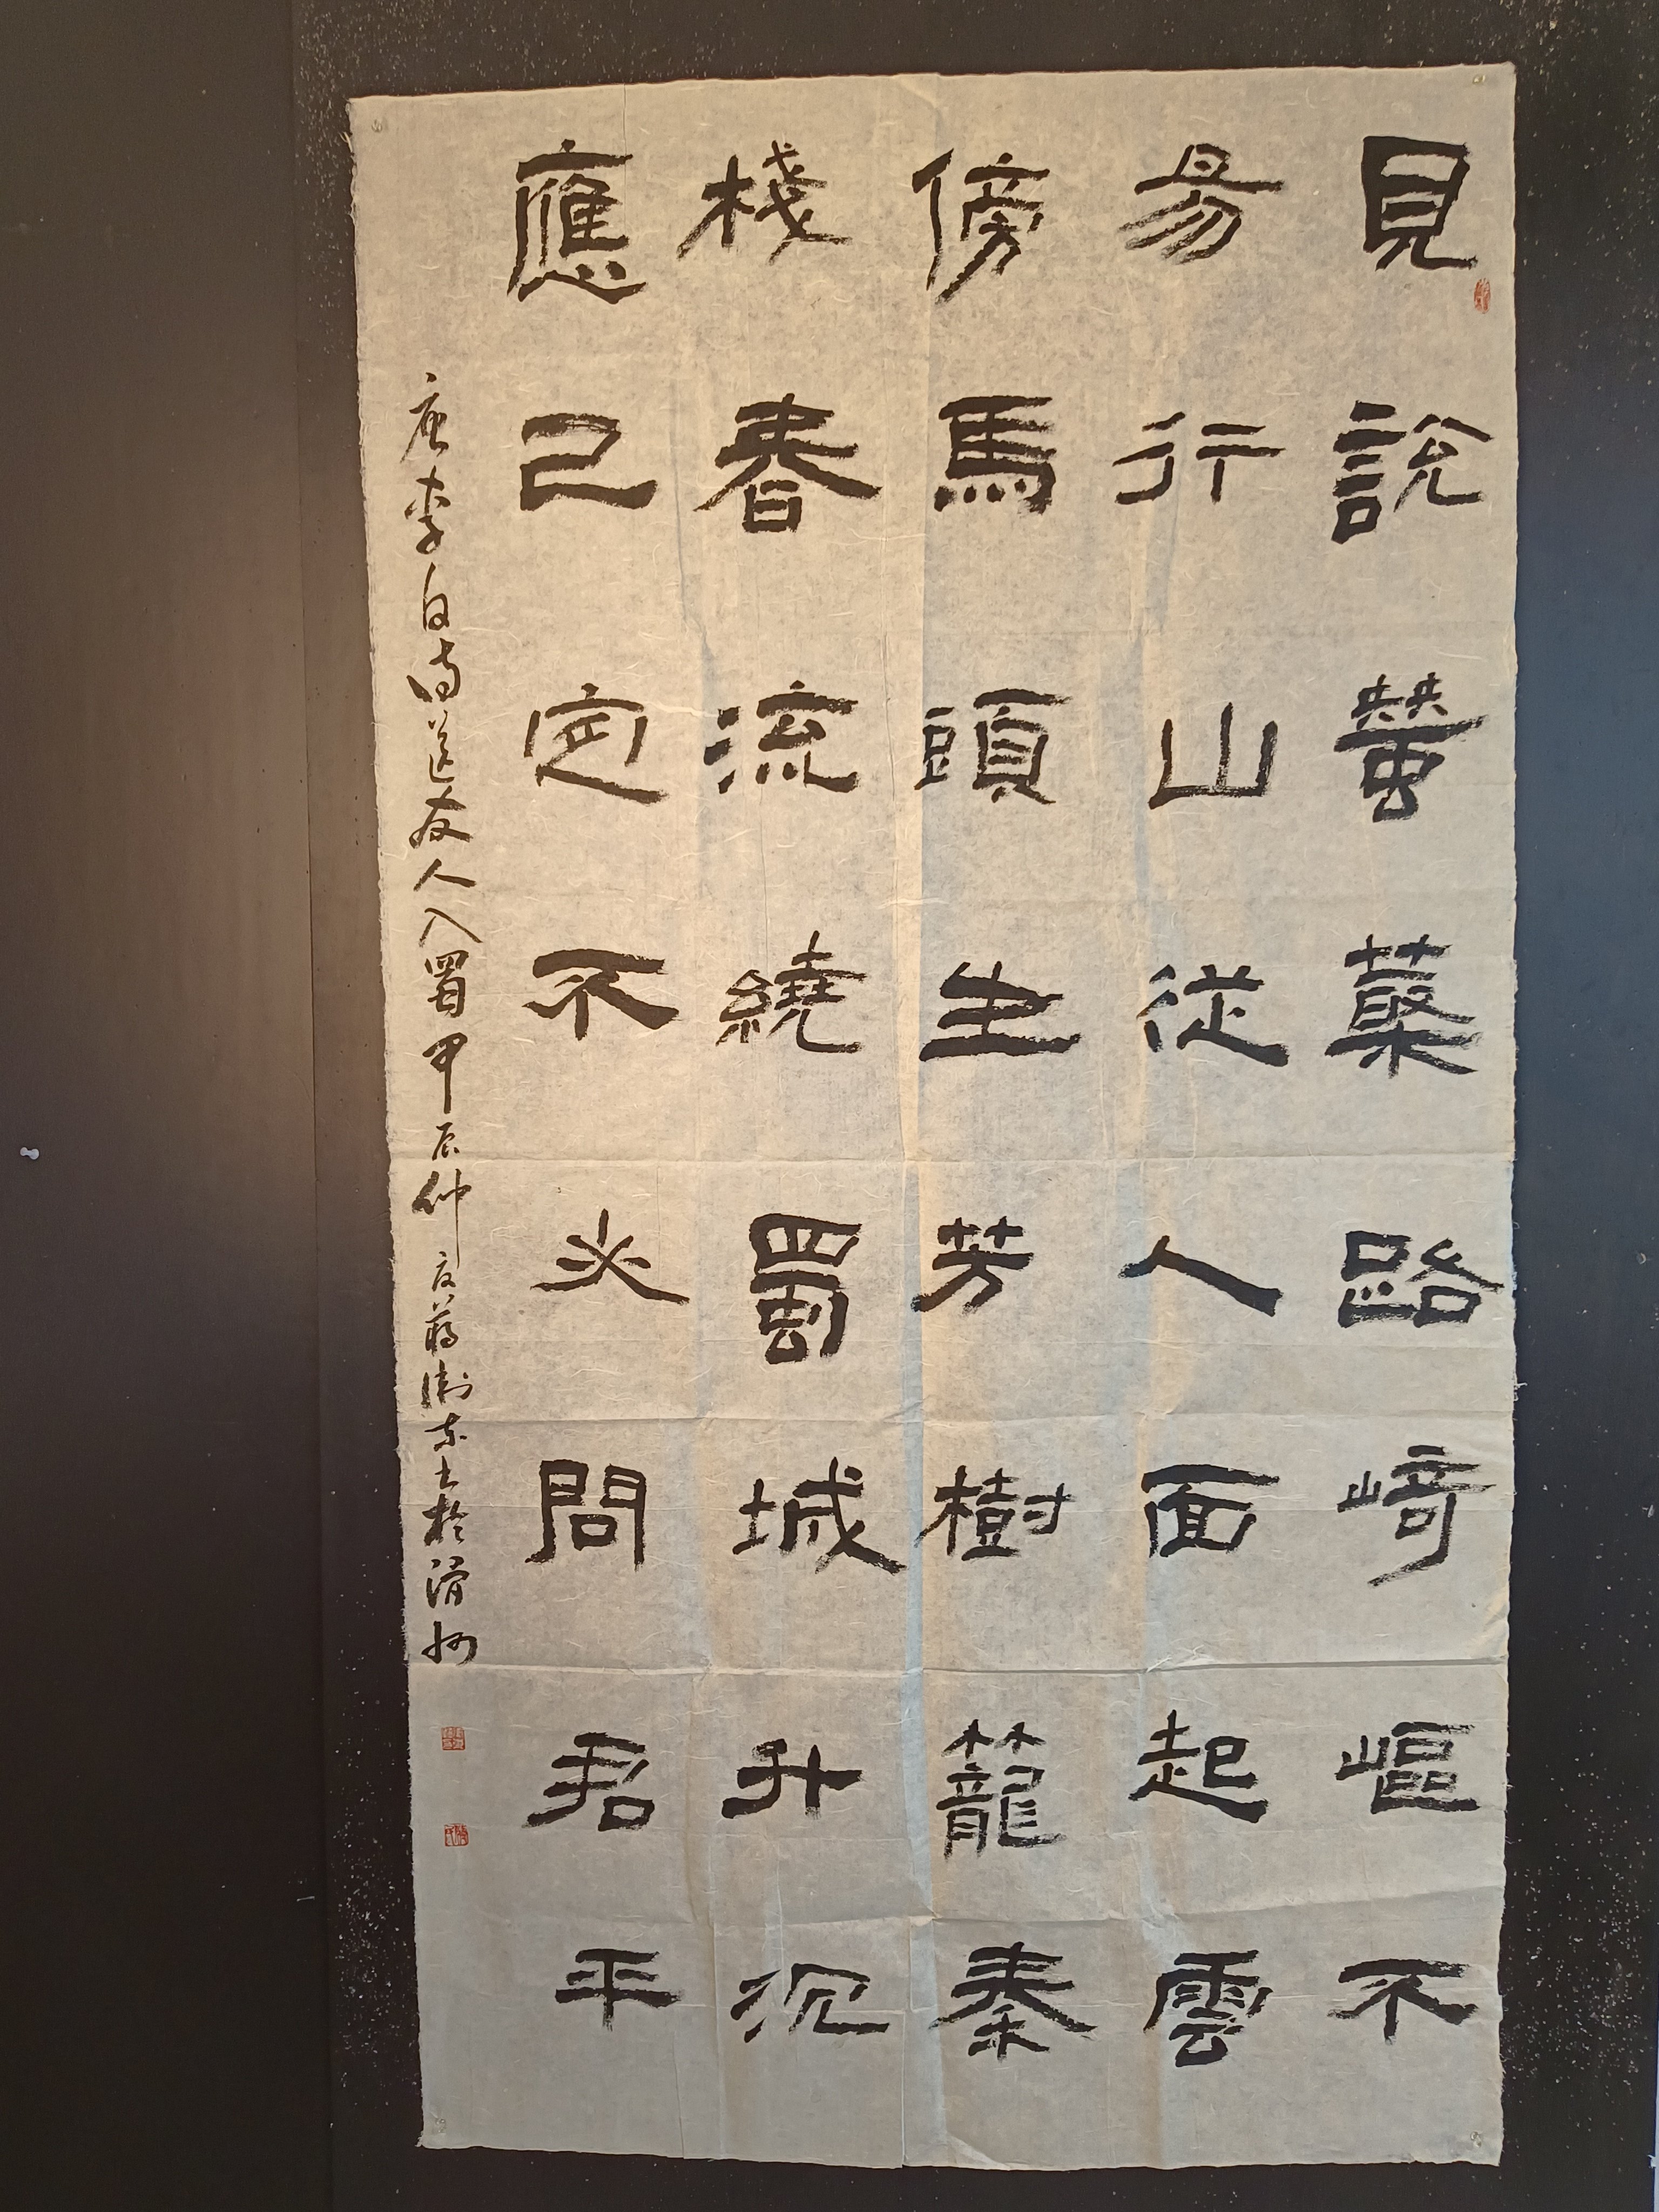 見說蠶藂路崎嶇不
易行山從人面起雲
傍馬頭生芳樹籠秦
棧春流繞蜀城升沉
應已定不必問君平
唐李白詩送友人入蜀甲辰仲夏蔣衛東書於滑州